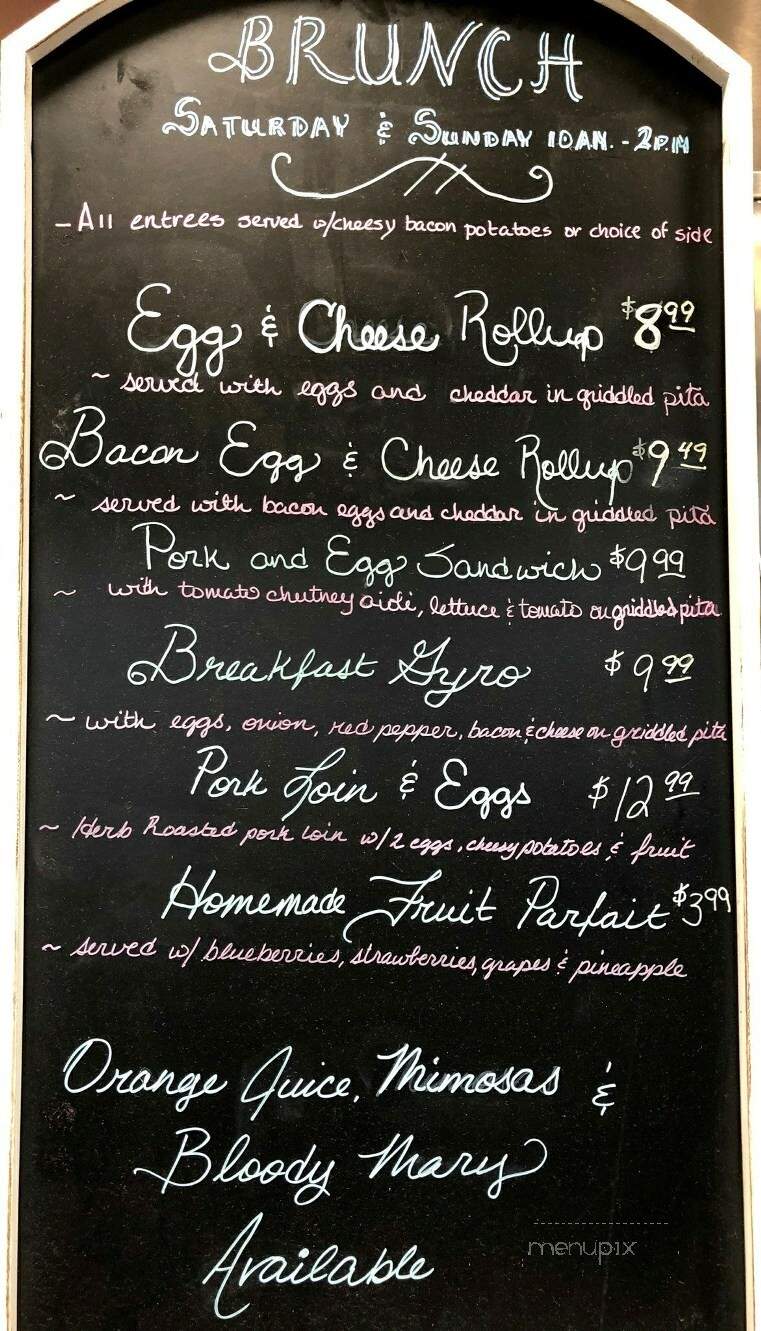 BRUNCH
SATURDAY & SUNDAY 10AM. - 2P.M
- All entrees served w/cheesy bacon potatoes or choice of side
Egg & Cheese Rollup $8.99
~ served with eggs and cheddar in griddled pita
Bacon Egg & Cheese Rollup $9.49
~ served with bacon eggs and cheddar in griddled pita
Pork and Egg Sandwich $9.99
~ with tomato chutney aioli, lettuce & tomato on griddled pita
Breakfast Gyro $9.99
~ with eggs, onion, red pepper, bacon & cheese on griddled pita
Pork Loin & Eggs $12.99
~ Herb Roasted pork loin w/2 eggs, cheesy potatoes & fruit
Homemade Fruit Parfait $3.99
~ served w/ blueberries, strawberries, grapes & pineapple
Orange Juice, Mimosas &
Bloody Mary
Available
menupix